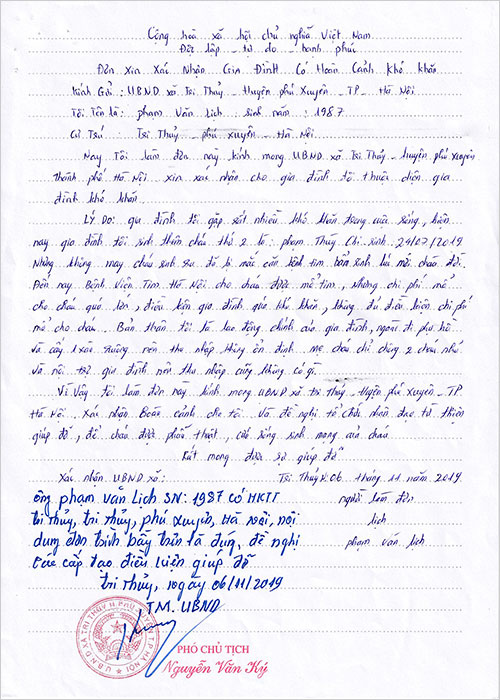 Cộng hoà xã hội chủ nghĩa Việt Nam
Độc lập - tự do - hạnh phúc
Đơn Xin Xác Nhận Gia Đình Có Hoàn Cảnh Khó khăn
Kính Gửi : UBND xã Tri Thuỷ - Huyện phú Xuyên - TP - Hà Nội
Tôi Tên là : phạm Văn Lịch : sinh năm : 1987
Cư Trú : Tri Thuỷ - phú xuyên - Hà Nội
Nay Tôi làm đơn này kính mong UBND xã Tri Thủy - huyện phú xuyên
thành phố Hà Nội xin xác nhận cho gia đình tôi thuộc diện gia
đình khó khăn.
LÝ DO: gia đình tôi gặp rất nhiều khó khăn trong cuộc sống, hiện
nay gia đình tôi sinh thêm cháu thứ 2 là : phạm Thùy Chi sinh : 29/07/2019
Nhưng không may cháu sinh ra đã bị mắc căn bệnh tim bẩm sinh lúc mới chào đời.
Đến nay Bệnh Viện Tim Hà Nội cho cháu được mổ tim, nhưng chi phí mổ
cho cháu quá lớn, điều kiện gia đình quá khó khăn, không đủ điều kiện chi phí
mổ cho cháu. Bản thân tôi là lao động chính của gia đình, ngoài đi phụ hồ
và cấy 1 xào ruộng nên thu nhập không ổn định mẹ cháu chỉ chông 2 cháu nhỏ
và nội trợ gia đình nên thu nhập cũng không có gì.
Vì Vậy tôi làm đơn này kính mong UBND xã tri thủy - Huyện phú Xuyên - TP
Hà Nội . Xác nhận hoàn cảnh cho tôi. Và đề nghị tổ chức nhân đạo từ thiện
giúp đỡ, để cháu được phẫu thuật, cứu sống sinh mạng của cháu
Rất mong được sự giúp đỡ
Xác nhận UBND xã : Tri Thủy N.06 tháng 11 năm 2019.
ông phạm văn Lịch SN: 1987 có HKTT người làm đơn
tri thủy, tri thủy, phú xuyên, Hà Nội, nội lịch
dung đơn trình bày trên là đúng, đề nghị phạm văn lịch
các cấp tạo điều kiện giúp đỡ
tri thủy, ngày 06/11/2019
TM. UBND
PHÓ CHỦ TỊCH
Nguyễn Văn Ký